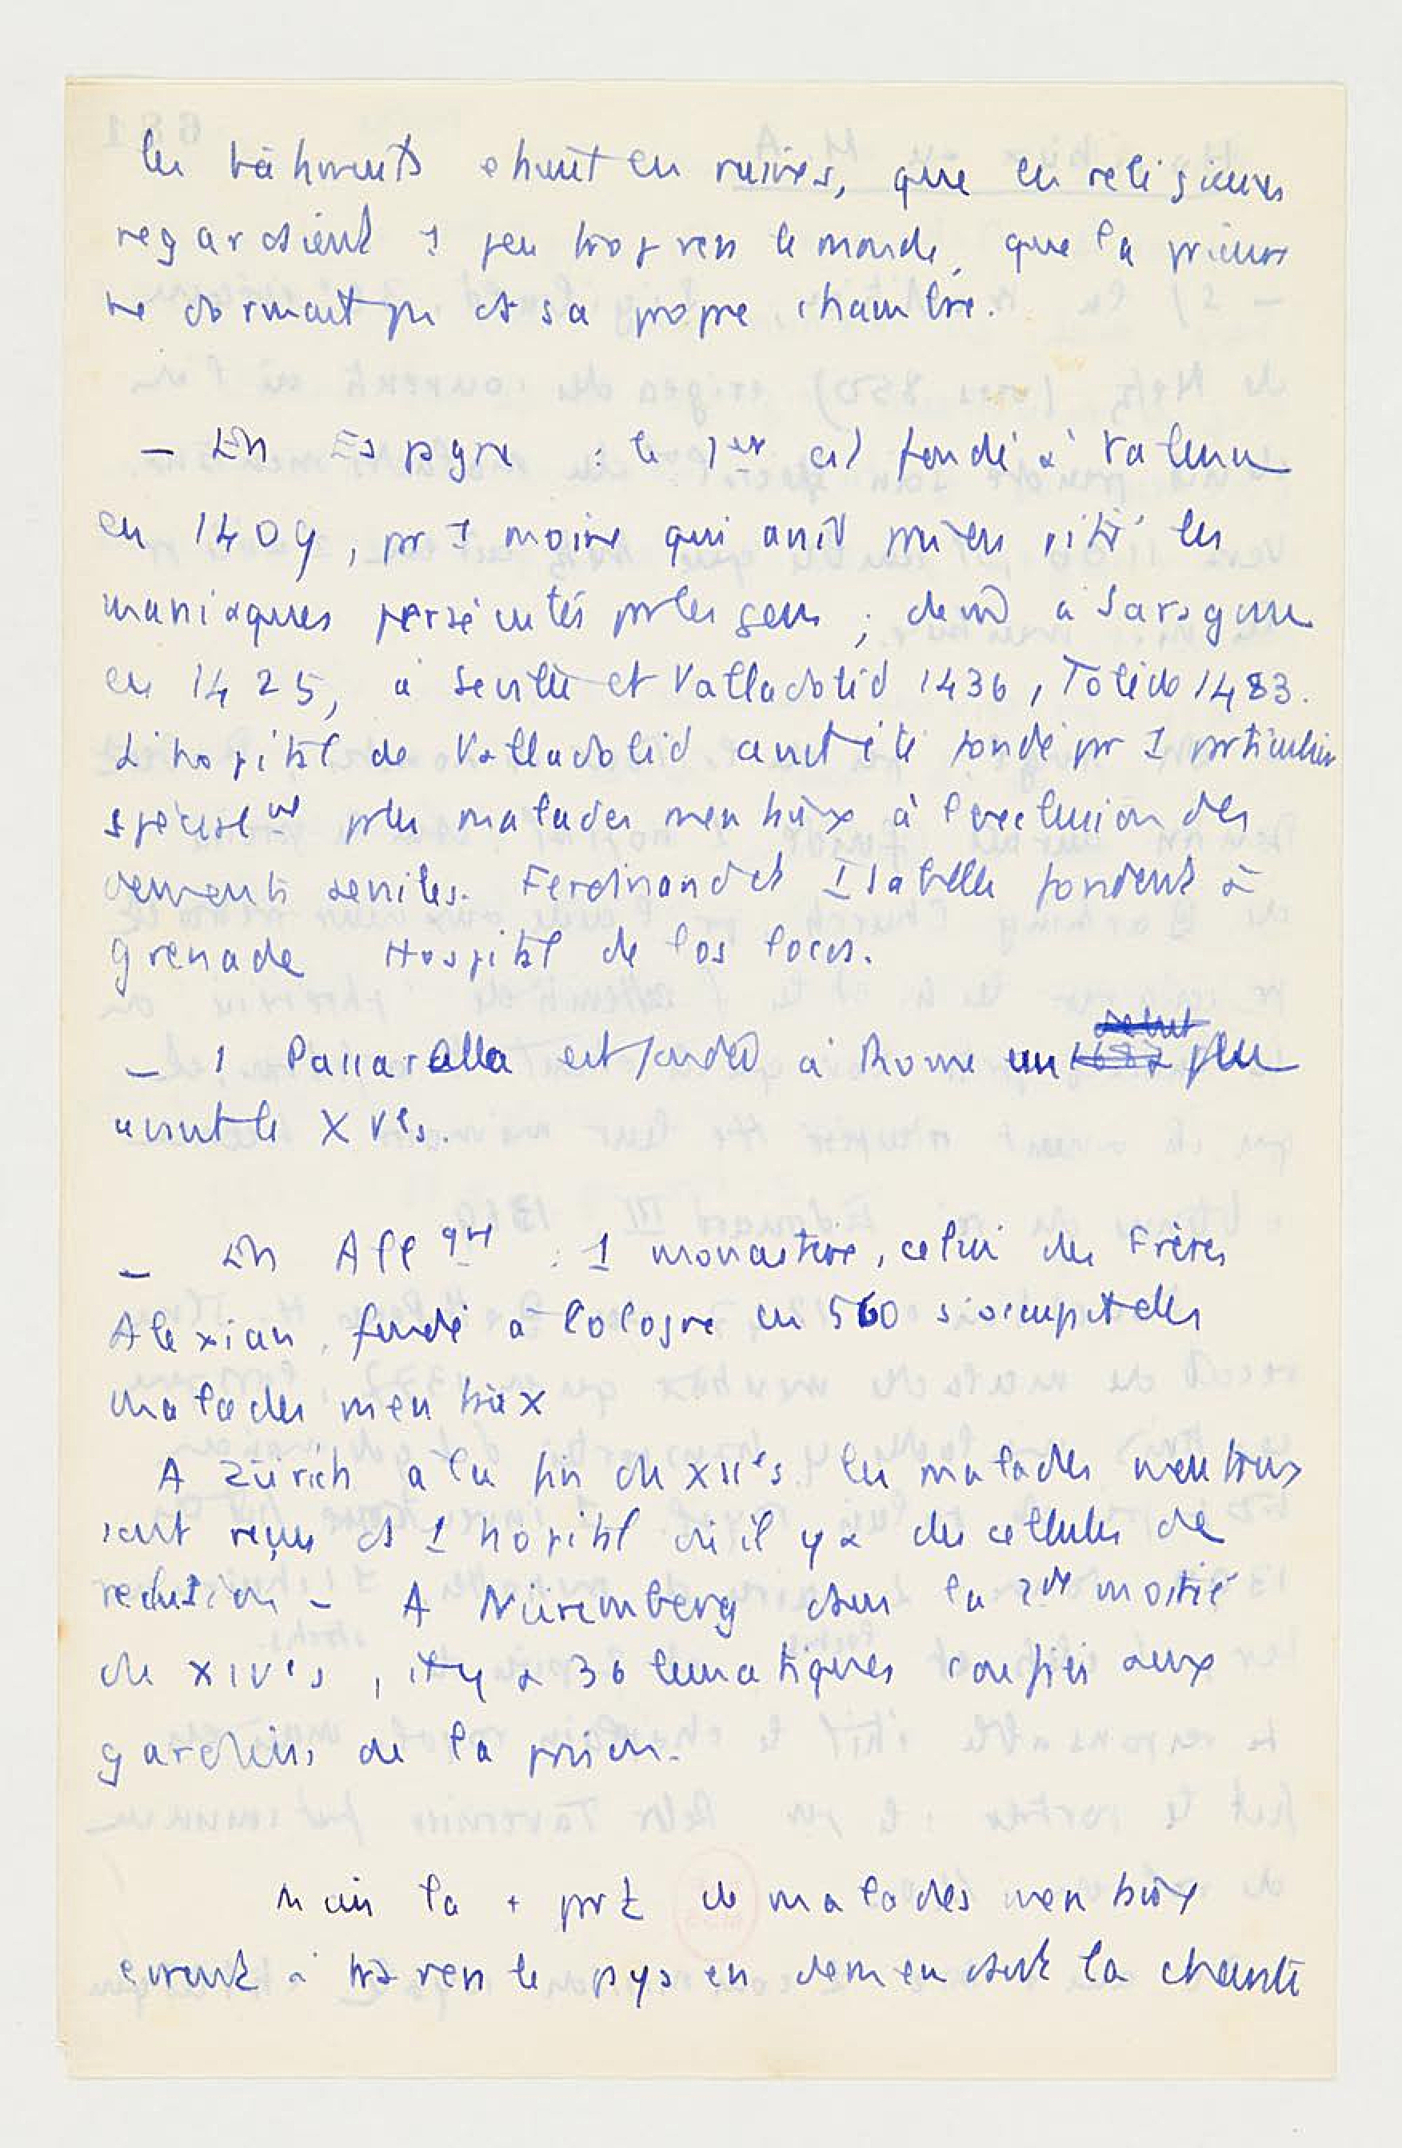 les bâtiments étaient en ruines, que les religieuses
regardaient 1 peu trop vers le monde, que la prieure
ne dormait pas ds sa propre chambre.
— En Espagne : le 1er est fondé à Valence
en 1409, pr 1 moine qui avait pris en pitié les
maniaques persécutés par les gens ; devnt à Saragosse
en 1425, à Seville et Valladolid 1436, Tolède 1483.
L'hopital de Valladolid avait été fondé pr 1 particulier
spécialemt pr les malades mentaux à l'exclusion des
dements seniles. Ferdinand et Isabelle fondent à
Grenade Hospital de los locos.
— 1 Pazzarella est fondée à Rome un peu
avant le XVe s.
— En Allgne : 1 monastère, celui des Frères
Alexian, fondé à Cologne en 560 s'occupait des
malades mentaux
A Zürich a la fin du XIIe s. les malades mentaux
sont reçus ds 1 hopital où il y a des cellules de
reclusion — A Nüremberg dans la 2de moitié
du XIVe s, il y a 36 lunatiques confiés aux
gardiens de la prison.
Mais la + part de malades mentaux
errent à travers le pays en demandant la charité